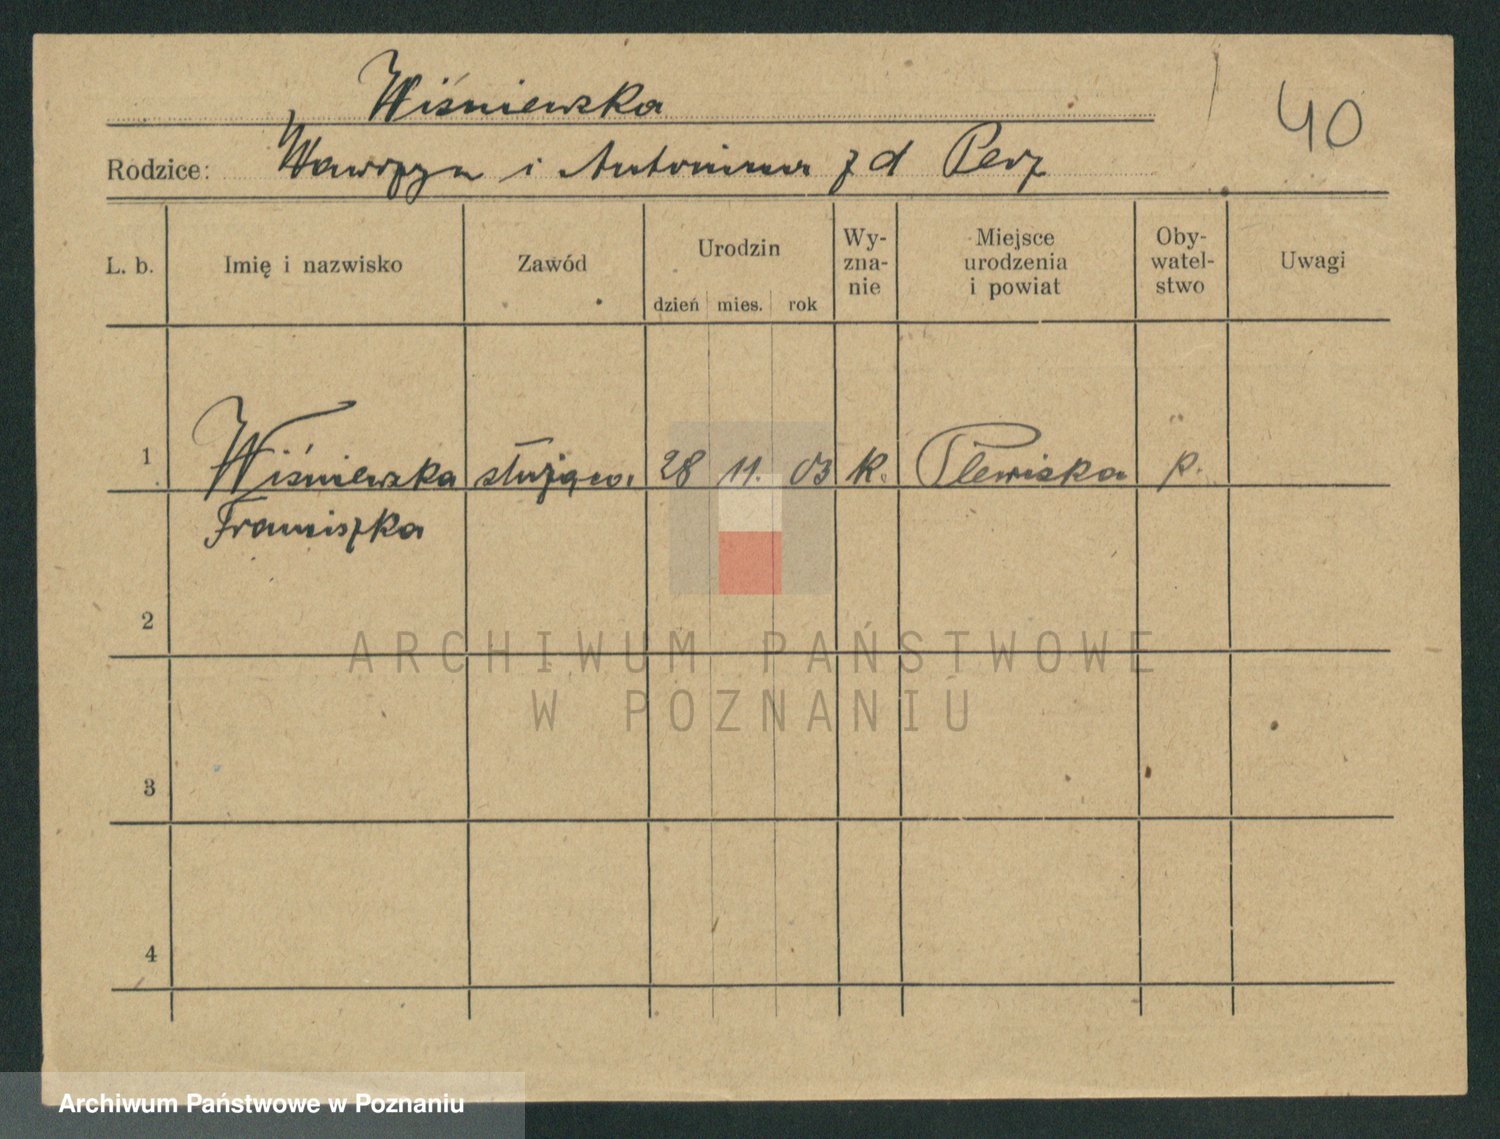 Wiśniewska
40
Rodzice: Wawrzyn i Antonina z d Perz
L. b. Imię i nazwisko Zawód Urodzin Wy- Miejsce Oby- Uwagi
zna- urodzenia watel-
nie i powiat stwo
dzień mies. rok
1 Wiśniewska służąca 28 11. 03 k. Plewiska p.
Franciszka
2
ARCHIWUM PAŃSTWOWE
W POZNANIU
3
4
Archiwum Państwowe w Poznaniu